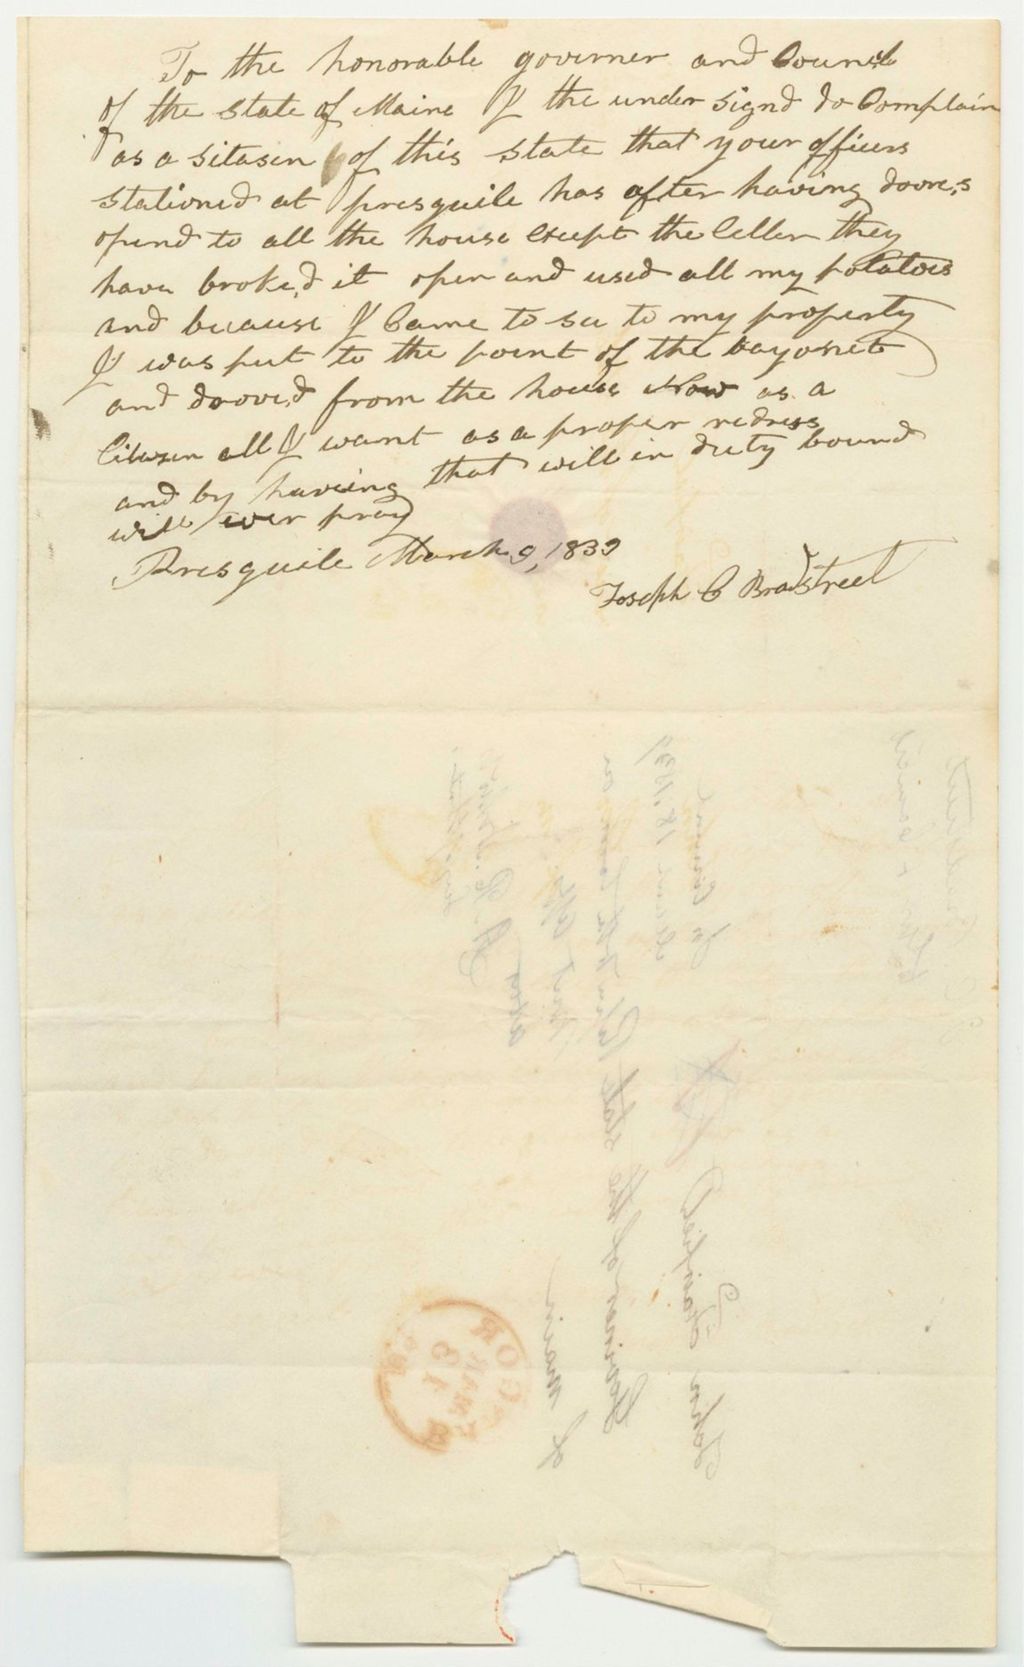 To the honorable governer and Council
of the state of Maine I the under signd do Complain
as a sitasen of this state that your officers
stationed at presquile has after having doores
opend to all the house except the celler they
have broke,d it open and used all my potatoes
and because I Came to see to my property
I was put to the point of the bayonet
and droove,d from the house Now as a
Citazen all I want as a proper redress
and by having that will in duty bound
will ever pray
Presquile March 9, 1839
Joseph C Bradstreet
John Fairfield
Governor of the state
of main
BANGOR
MAR
13